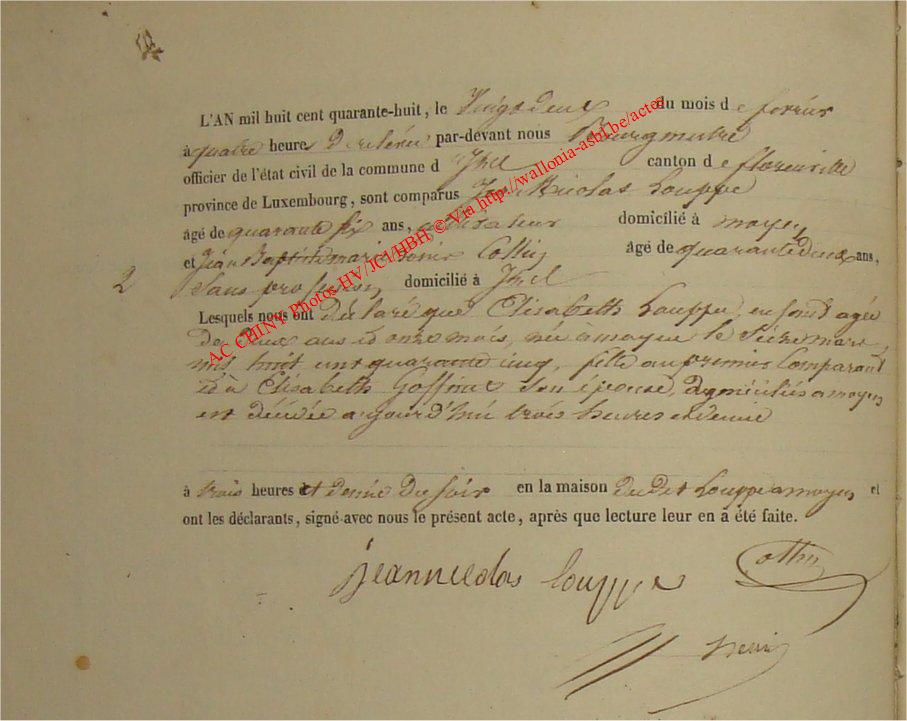 L'AN mil huit cent quarante-huit, le Vingt deux du mois de fevrier
à quatre heures de relevée par-devant nous Bourgmestre
officier de l'état civil de la commune d' Izel canton de florenville
province de Luxembourg, sont comparus Jean Nicolas Louppe
âgé de quarante six ans, cultivateur domicilié à moyen
et Jean Baptiste marie Collin âgé de quarante deux ans,
2 Sans profession domicilié à Izel
Lesquels nous ont déclaré que Elisabeth Louppe, enfant agée
de deux ans et onze mois, née à moyen le mars
mil huit cent quarante cinq, fille au premier Comparant
et à Elisabeth Goffinet son épouse, domiciliés a moyen
est décédée aujourd'hui trois heures et demie
à trois heures et demie du soir en la maison dudit Louppe a moyen et
ont les déclarants, signé avec nous le présent acte, après que lecture leur en à été faite.
jeannicolas louppe Collin
AC CHINY Photos HV/JC1/HBH © Via http://wallonia-asbl.be/actes